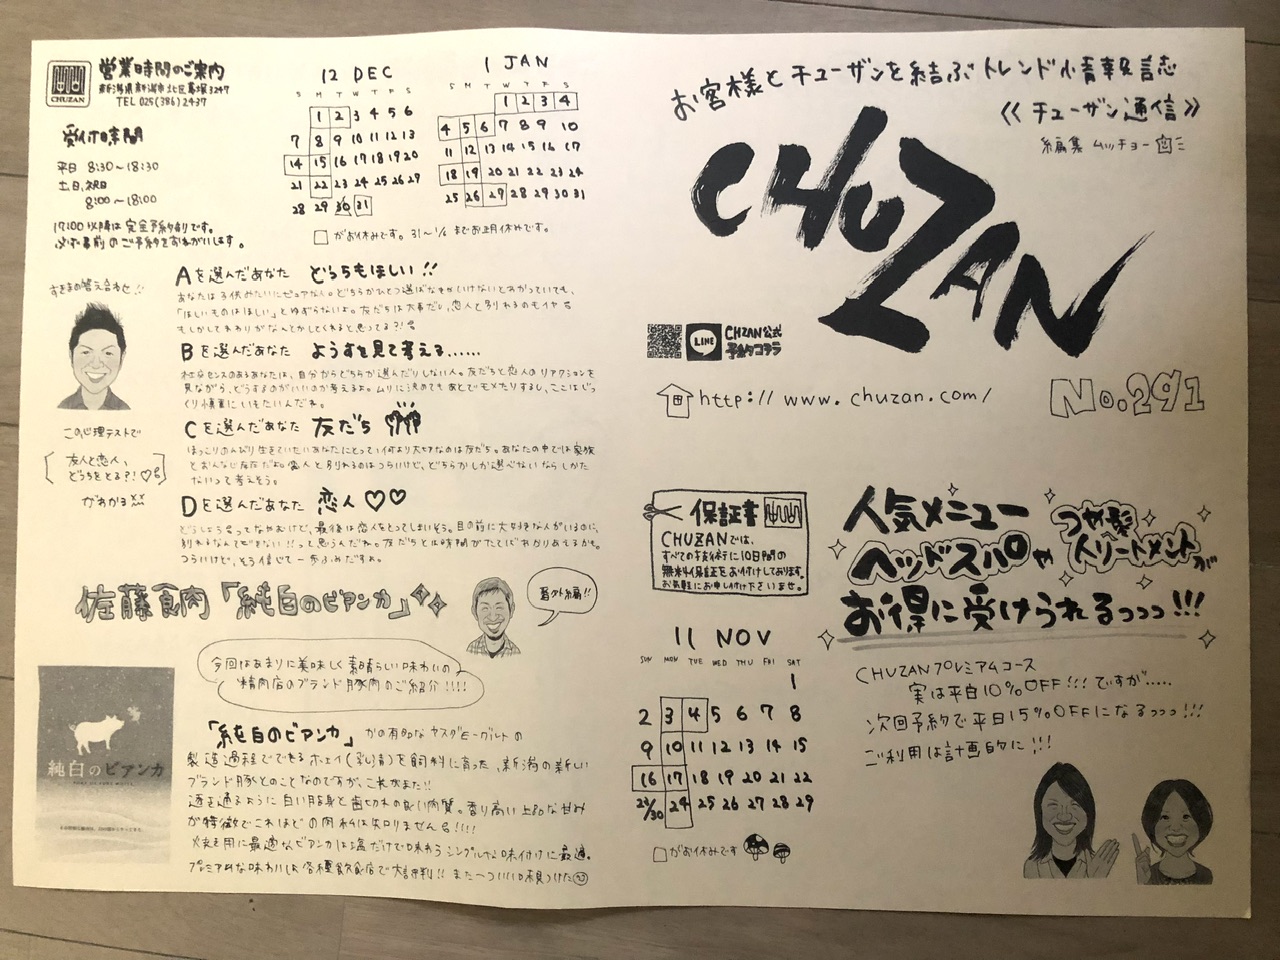 CHUZAN
営業時間のご案内
新潟県新潟市北区葛塚3247
TEL 025(386)2437
受付時間
平日 8:30～18:30
土日、祝日
8:00～18:00
17:00以降は完全予約制です。
必ず事前のご予約をおねがいします。
12 DEC
S M T W T F S
1 2 3 4 5 6
7 8 9 10 11 12 13
14 15 16 17 18 19 20
21 22 23 24 25 26 27
28 29 30 31
1 JAN
S M T W T F S
1 2 3 4
4 5 6 7 8 9 10
11 12 13 14 15 16 17
18 19 20 21 22 23 24
25 26 27 28 29 30 31
□がお休みです。31～1/6までお正月休みです。
答え合わせ!!
この心理テストで
友人と恋人、
どっちをとる?!♡
がわかる
Aを選んだあなた どっちもほしい!!
「ほしいものはほしい」とゆずらないよ。友だちは大事だし、恋人と別れるのもイヤ
もしかしてまわりがなんとかしてくれると思ってる?!
Bを選んだあなた ようすを見て考える……
社交センスのあるあなたは、自分からどちらか選んだりしない人。友だちと恋人のリアクションを
見ながら、どうするのがいいのか考えるよ。ムリに決めてもあとでモメたりするし、ここはじっ
くり慎重にいきたいんだね。
Cを選んだあなた 友だち
ほっこりのんびり生きていたいあなたにとって1何より大切なのは友だち。あなたの中では家族
とおんなじ存在だよ。恋人と別れるのはつらいけど、どちらかしか選べないならしかた
ないって考えそう。
Dを選んだあなた 恋人♡♡
どうしようってなやむけど、最後は恋人をとってしまいそう。目の前に大好きな人がいるのに、
別れるなんてぜったいない!!って思うんだね。友だちとは時間がたてばわかりあえるかも。
つらいけど、そう信じて一歩ふみだすよ。
佐藤食肉「純白のビアンカ」
番外編!!
今回はあまりに美味しく素晴らしい味わいの
精肉店のブランド豚肉のご紹介!!!!
純白のビアンカ
「純白のビアンカ」かの有名なヤスダヨーグルトの
製造過程でできるホエイ(乳清)を飼料に育った、新潟の新しい
ブランド豚とのことなのですが、これがまた!!
透き通るように白い脂身と歯切れの良い肉質。香り高い上品な甘み
が特徴でこれほどの肉私は知りません!!!!
炊き用に最適なビアンカは塩だけで味わうシンプルな味付けに最適。
プレミアムな味わいは各種飲食店で大評判!!また一ついい口実見つけた
お客様とチューザンを結ぶトレンド情報誌
《チューザン通信》
編集 ムッチョー
CHUZAN
LINE
CHUZAN公式
予約コチラ
http://www.chuzan.com/
No.291
保証書
CHUZANでは、
すべての技術に10日間の
無料保証をお付けしております。
お気軽にお申し付け下さいませ。
11 NOV
SUN MON TUE WED THU FRI SAT
1
2 3 4 5 6 7 8
9 10 11 12 13 14 15
16 17 18 19 20 21 22
23/30 24 25 26 27 28 29
□がお休みです
人気メニュー
ヘッドスパやつや髪トリートメントが
お得に受けられるっっっ!!!
CHUZANプレミアムコース
実は平日10%OFF!!!ですが.....
次回予約で平日15%OFFになるっっっ!!!
ご利用は計画的に!!!